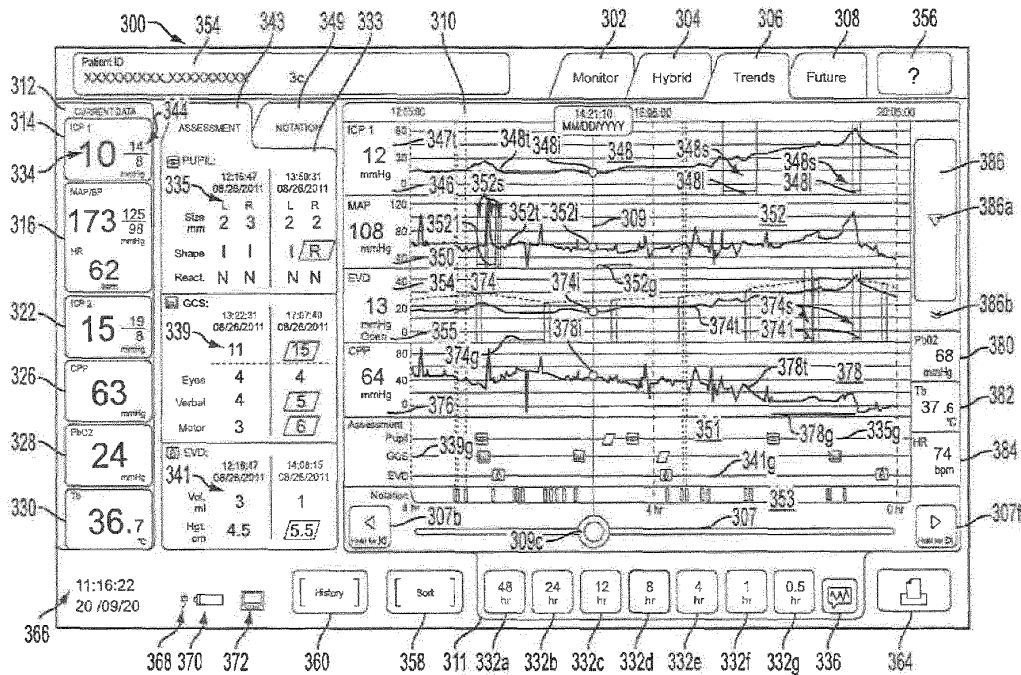 300 354 343 349 333 310 302 304 306 308 356
Patient ID
3c
Monitor Hybrid Trends Future ?
312
CURRENT DATA
314
ICP 1
344
10 14
8
mmHg
334
MAP/BP
316
173 125
98
mmHg
HR
62
bpm
322
ICP 2
15 19
8
mmHg
326
CPP
63
mmHg
328
PbO2
24
mmHg
330
Tb
36.7
°C
ASSESSMENT NOTATION
PUPIL:
12:16:47 13:50:31
08/26/2011 08/26/2011
335
L R L R
Size
mm 2 3 2 2
Shape I I I R
React. N N N N
GCS:
13:22:31 17:07:40
08/26/2011 08/26/2011
339
11 15
Eyes 4 4
Verbal 4 5
Motor 3 6
EVD:
12:16:47 14:08:15
08/26/2011 08/26/2011
341
Vol.
ml 3 1
Hgt.
cm 4.5 5.5
14:21:10
MM/DD/YYYY
20:05:00
ICP 1
12
mmHg
347t 348t 348i 348 348s 348s
348l 348l
346 352s
MAP
108
mmHg
120
80
352l 352t 352i 309 352
350
352g
EVD
13
Open
40
20
0
354 374 374i 374s
374t 374l
355 378i
CPP
64
mmHg
80
40
0
374g 378t 378
376
378g 335g
Assessment
351
Pupil
GCS 339g
EVD 341g
Notation 353
8 hr 4 hr 0 hr
307b 309c 307 307f
386
386a
386b
PbO2
68
mmHg
380
Tb
37.6
°C
382
HR
74
bpm
384
11:16:22
20 /09/20
366
History Sort
48
hr
24
hr
12
hr
8
hr
4
hr
1
hr
0.5
hr
368 370 372 360 358 311 332a 332b 332c 332d 332e 332f 332g 336 364